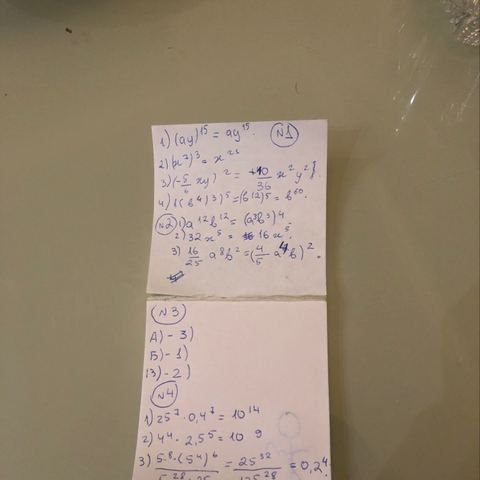 1) (ay)¹⁵ = ay¹⁵. (N1)
2) (x⁷)³ = x²¹
3) (-5/6 xy)² = 10/36 x²y²
4) ((b⁴)3)⁵ = (b12)⁵ = b⁶⁰.
(N2) 1) a¹²b¹² = (a³b³)⁴
2) 32x⁵ = 16x⁵.
3) 16/25 a⁸b² = (4/5 a⁴b)².
(N3)
А) - 3)
Б) - 1)
В) - 2)
(N4)
1) 25⁷ · 0,4⁷ = 10¹⁴
2) 4⁴ · 2,5⁵ = 10⁹
3) 5⁸·(5⁴)⁶ / 5²⁸·25 = 25³² / 125²⁸ = 0,2⁴.